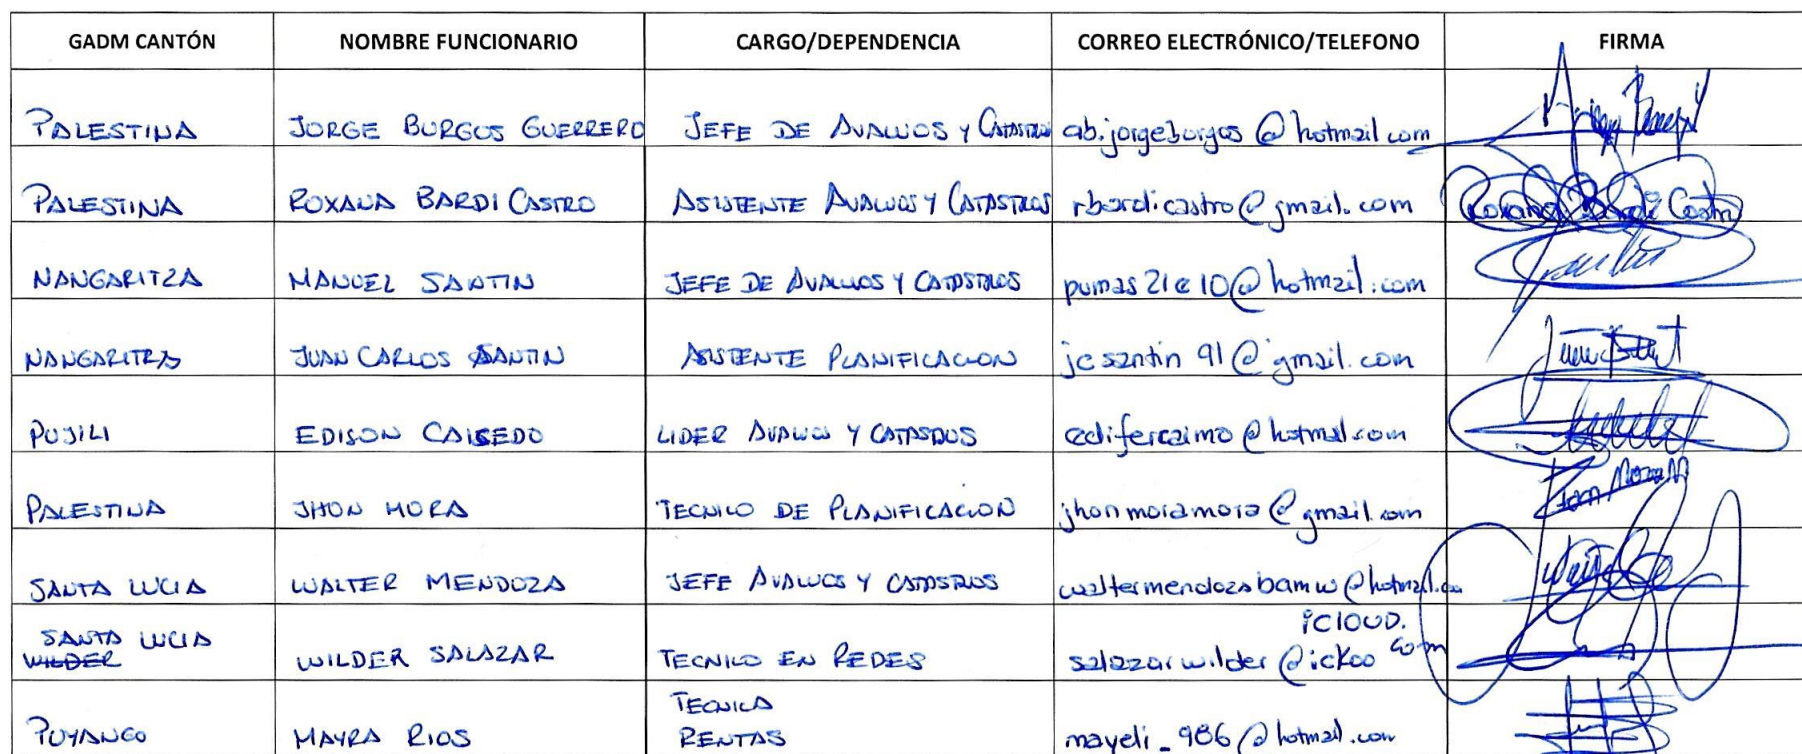 GADM CANTÓN NOMBRE FUNCIONARIO CARGO/DEPENDENCIA CORREO ELECTRÓNICO/TELEFONO FIRMA
PALESTINA JORGE BURGOS GUERRERO JEFE DE AVALUOS Y CATASTROS ab.jorgeburgos@hotmail.com
PALESTINA ROXANA BARDI CASTRO ASISTENTE AVALUOS Y CATASTROS rbardicastro@gmail.com Roxana Bardi Castro
NANGARITZA MANUEL SANTIN JEFE DE AVALUOS Y CATASTROS pumas21e10@hotmail.com
NANGARITZA JUAN CARLOS SANTIN ASISTENTE PLANIFICACION jcsantin91@gmail.com
PUJILI EDISON CAICEDO LIDER AVALUOS Y CATASTROS edifercaimo@hotmail.com
PALESTINA JHON MORA TECNICO DE PLANIFICACION jhonmoramora@gmail.com
SANTA LUCIA WALTER MENDOZA JEFE AVALUOS Y CATASTROS waltermendozabamw@hotmail.co
SANTA LUCIA iCLOUD.
WILDER WILDER SALAZAR TECNICO EN REDES salazarwilder@ickoo com
TECNICA
PUYANGO MAYRA RIOS RENTAS mayeli_986@hotmail.com